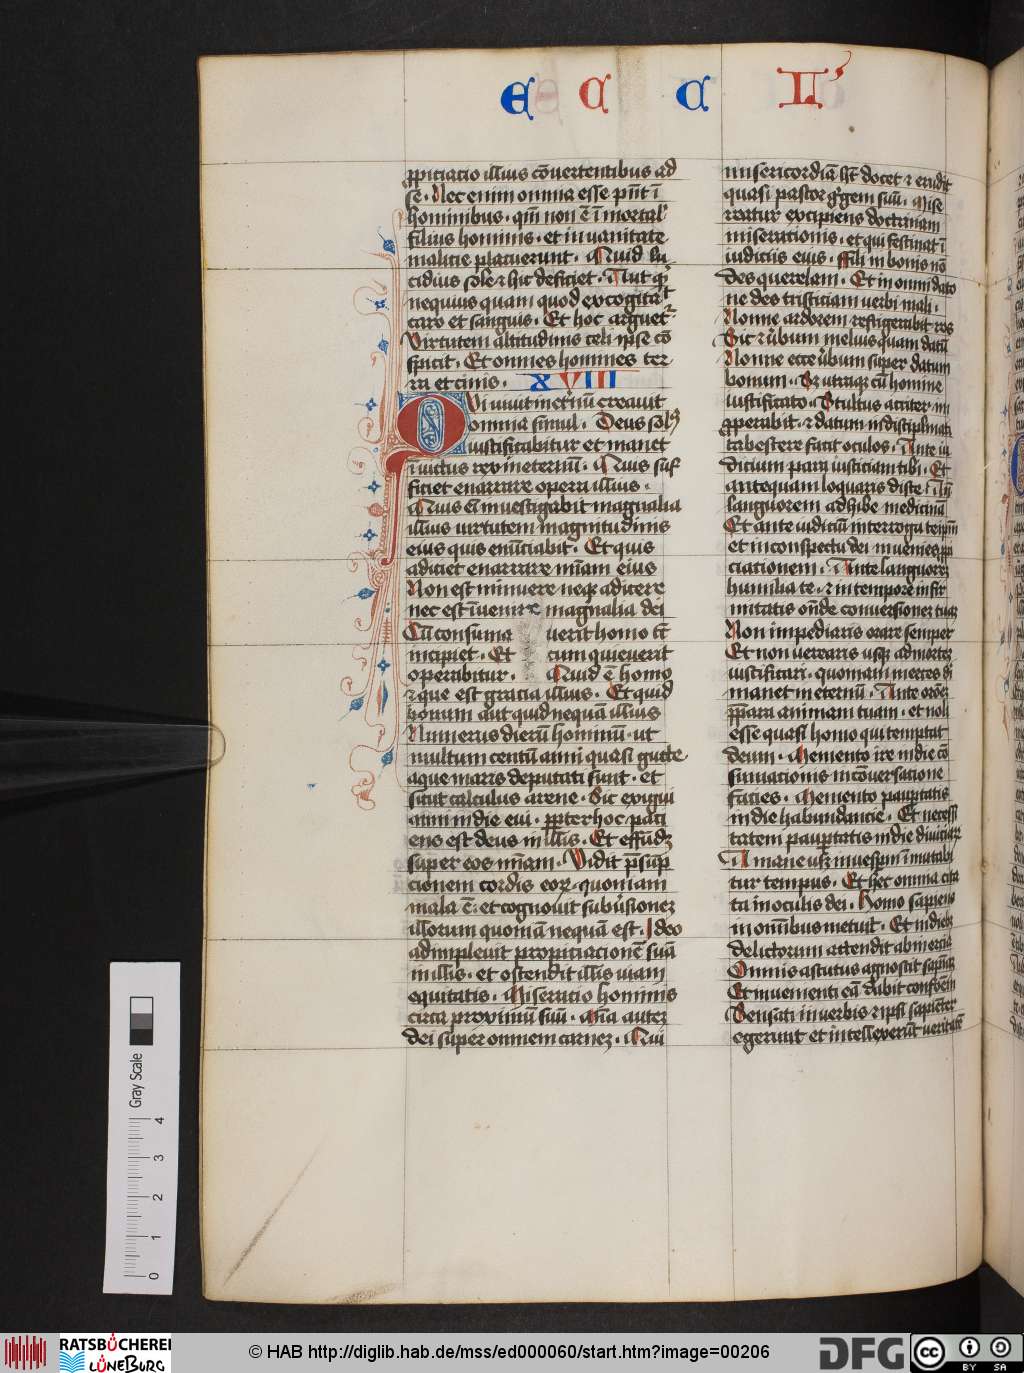 E C C L'
ꝓpiciacio illius cōuertentibus ad
se. Nec enim omnia esse pn̄t ī
hominibus. qm̄ non ē īmortal'
filius hominis. et in uanitate
malicie placuerunt. Quid lu
cidius sole ⁊ hic deficiet. Aut qͥd
nequius quam quod excogitat
caro et sanguis. Et hoc arguet᷑
Virtutem altitudinis celi ipse cō
spicit. Et omnes homines ter
ra et cinis. XVIII
Qui uiuit inetnū creauit
omnia simul. Deus solꝰ
iustificabitur et manet
īuictus rex ineternū. Quis suf
ficiet enarrare opera illius.
Quis em̄ inuestigabit magnalia
illius uirtutem magnitudinis
eius quis enūciabit. Et quis
adiciet enarrare mīam eius
Non est minuere neqꝫ adicere
nec est īuenire magnalia dei
Cū consuma uerit homo tc̄
incipiet. Et cum quieuerit
operabitur. Quid ē homo
⁊ que est gracia illius. Et quid
bonum aut quid nequā illius
Numerus dierū hominū. ut
multum centū anni quasi gutte
aque maris deputati sunt. et
sicut calculus arene. Sic exigui
anni in die eui. ꝓpter hoc paci
ens est deus in illis. Et effūdꝫ
super eos mīam. Vidit p̄sūp
cionem cordis eoꝝ. quoniam
mala ē. et cognouit subuersionez
illorum quoniā nequā est. Ideo
adimpleuit propiciacionē suā
in illis. et ostendit illis uiam
equitatis. Miseratio hominis
circa proximū suū. Mīa autez
dei super omnem carnez. Qui
misericordiā ht̄ docet ⁊ erudit
quasi pastor gͤgem suū. Mise
reatur excipiens doctrinam
miserationis. et qui festinat ī
iudiciis eius. ffili in bonis nō
des querelam. Et in omni dato
ne des tristiciam uerbi mali.
Nonne ardorem refrigerabit ros
Sic ⁊ ūbum melius quam datū
Nonne ecce ūbum super datum
bonum. Sꝫ utraqꝫ cū homine
iustificato. Stultus acriter im
ꝓperabit. ⁊ datum indisciplinati
tabescere facit oculos. Ante iu
dicium para iusticiam tibi. Et
antequam loquaris disce. An̄
languorem adhibe medicinā
Et ante iudiciū interroga teipm̄
et in conspectu dei inuenies ꝓpi
ciacionem. Ante languorez
humilia te. ⁊ in tempore infir
mitatis on̄de conuersionez tuaꝫ
Non impediaris orare semper
Et non uerearis usqꝫ ad mortez
iustificari. quoniam merces di
manet ineternū. Ante orōez
p̄para animam tuam. et noli
esse quasi homo qui temptat
deum. Memento ire in die cō
sumacionis incōuersacione
faciei. Memento paup̄tatis
in die habundancie. Et necessi
tatem paup̄tatis in die diuiciaꝝ
A mane usqꝫ inuesp̄m īmutabi
tur tempus. Et hec omnia cita
ta in oculis dei. Homo sapiens
in omībus metuit. Et in diebꝫ
delictorum attendit ab inercia
Omnis astutus agnoscit sap̄iaꝫ
Et inuenienti eā dabit confessōem
Sensati in uerbis ⁊ ipsi sapiēter
egerunt et intellexerūt ueritatē
Gray Scale
0 1 2 3 4
RATSBÜCHEREI
LÜNEBURG
© HAB http://diglib.hab.de/mss/ed000060/start.htm?image=00206
DFG
cc BY SA